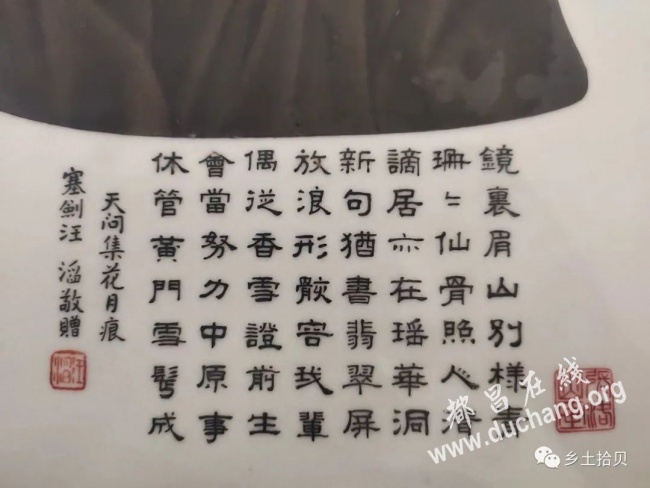 鏡裏眉山別樣青
珊〻仙骨照
謫居亦在瑤華洞
新句猶書翡翠屏
放浪形骸容我輩
偶從香雪證前生
會當努力中原事
休管黃門雪鬢成
天问集花月痕
塞劍汪滔敬贈
都昌在线
www.duchang.org
乡土拾贝